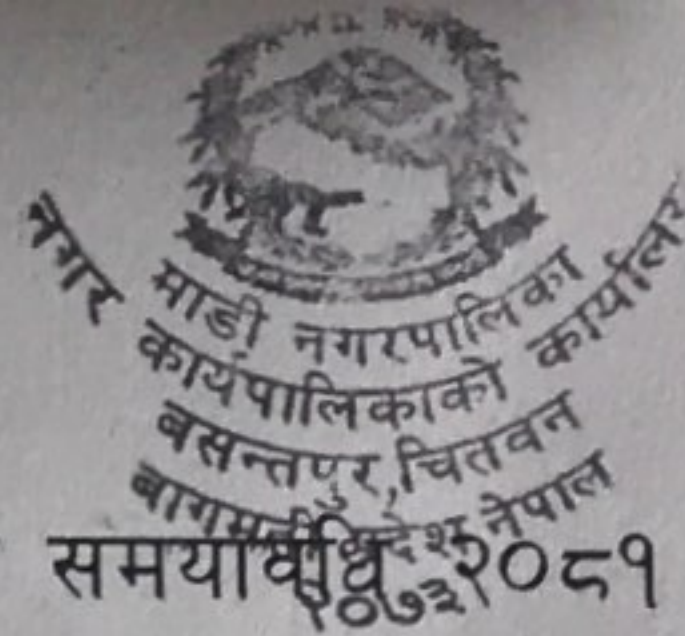 माडी नगरपालिका
नगर कार्यपालिकाको कार्यालय
बसन्तपुर, चितवन
बागमती प्रदेश, नेपाल
२०७३
समयावधि २०८१